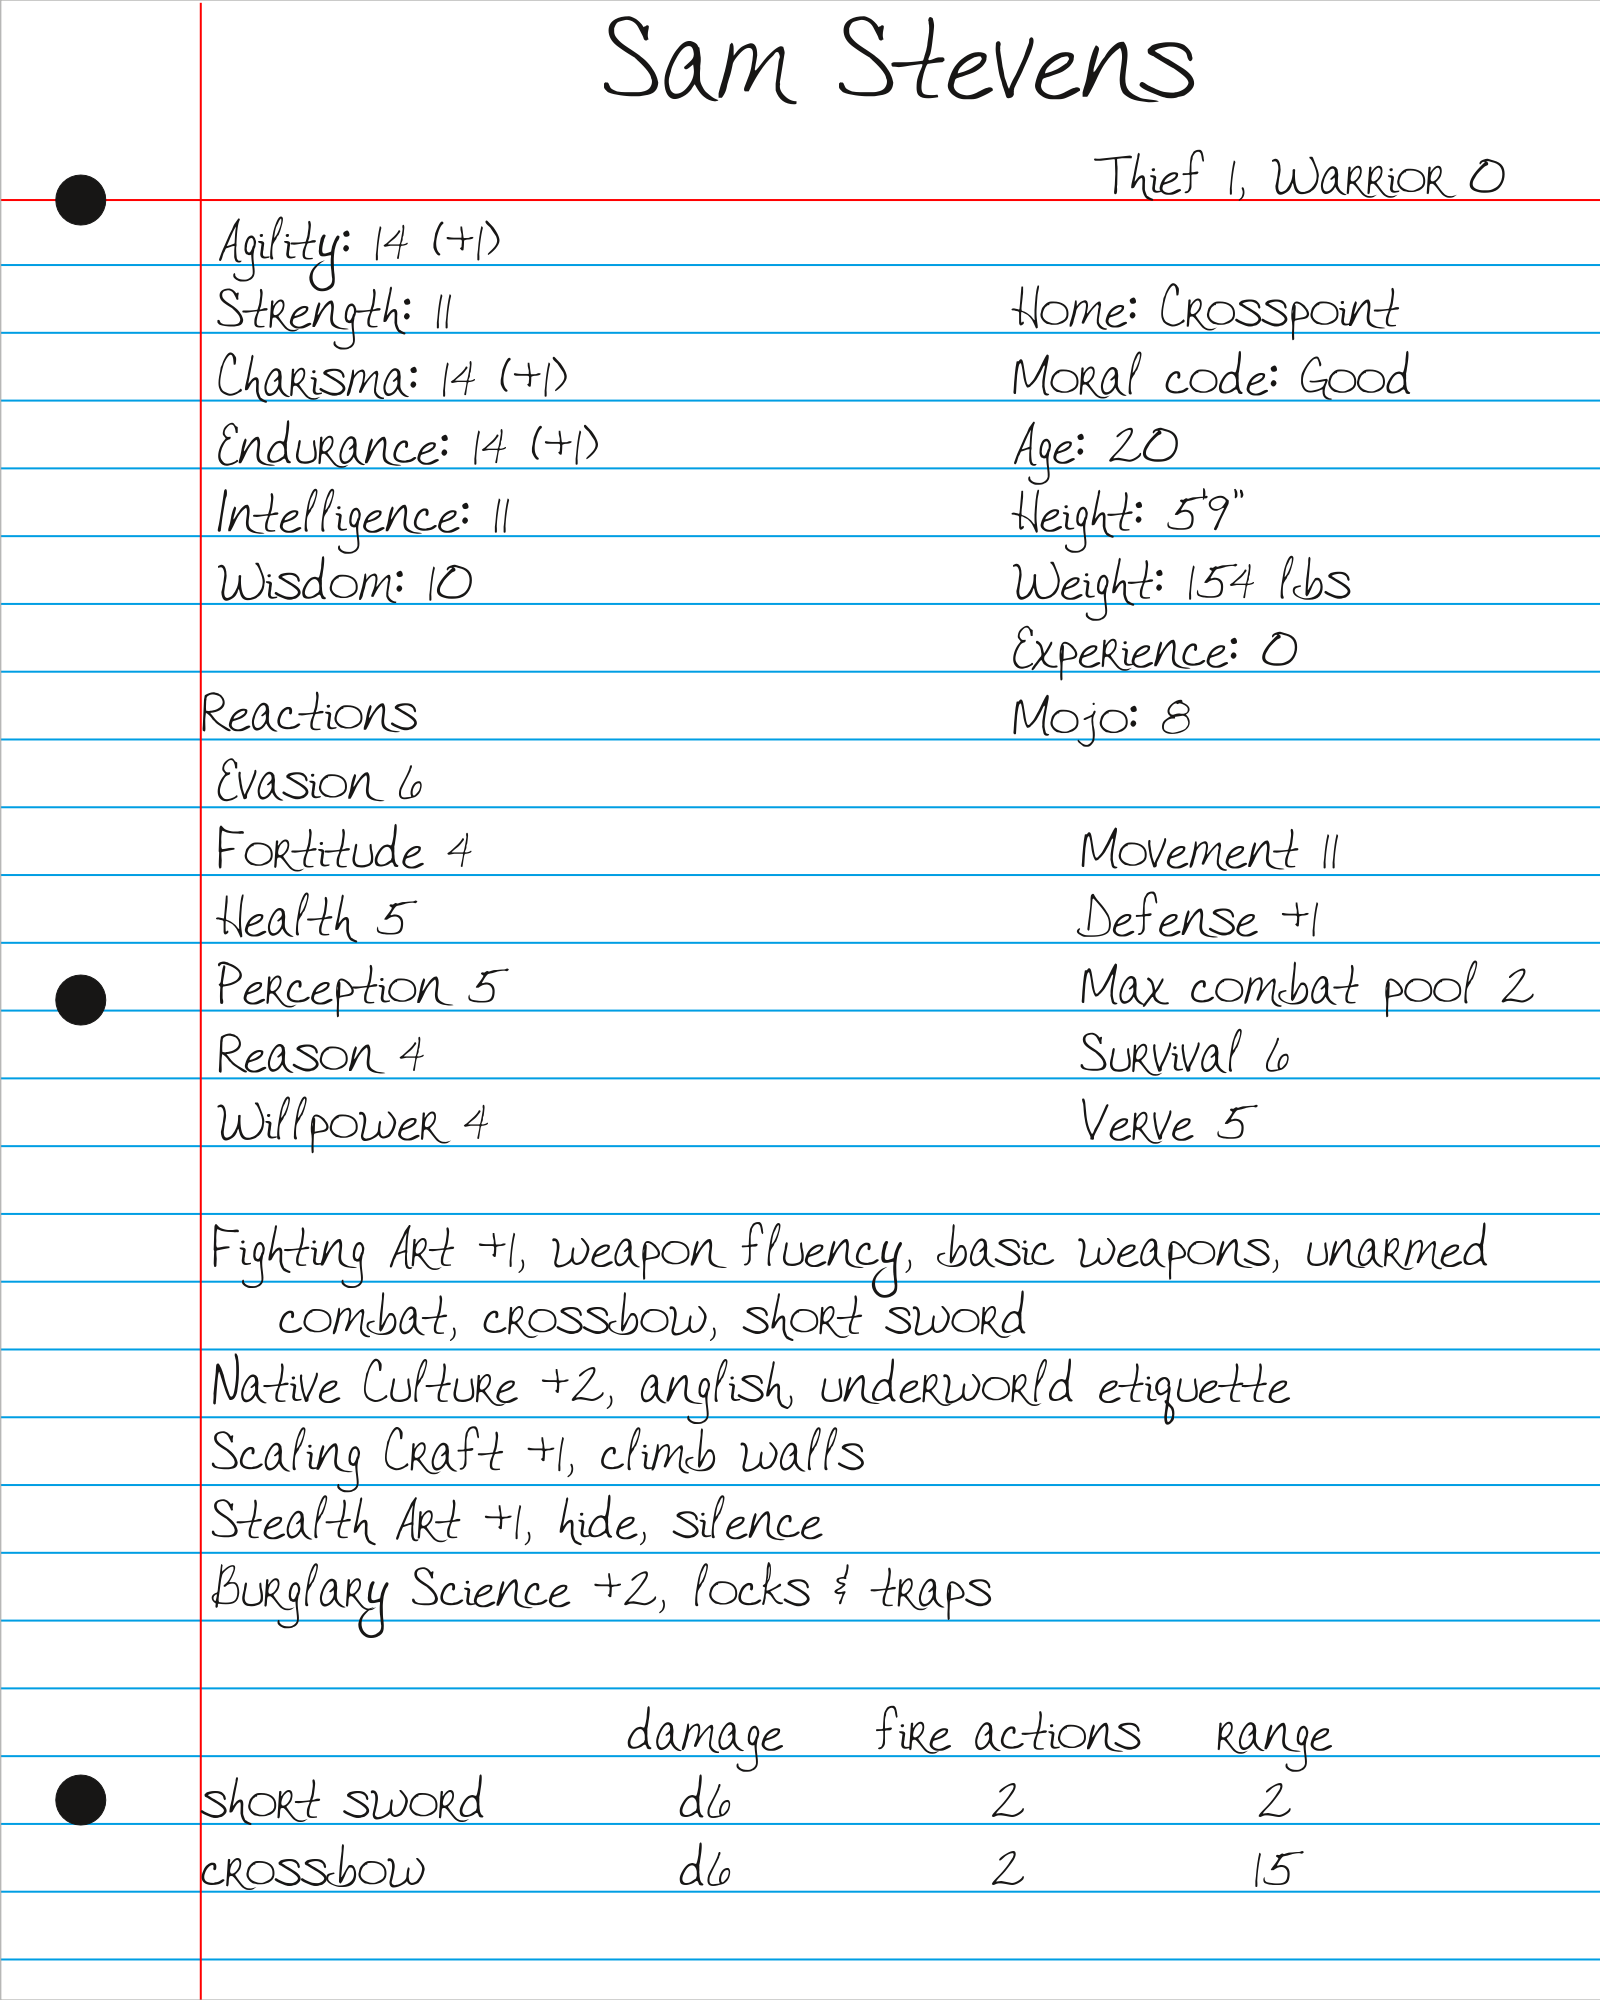 Sam Stevens
Thief 1, Warrior 0
Agility: 14 (+1)
Strength: 11
Charisma: 14 (+1)
Endurance: 14 (+1)
Intelligence: 11
Wisdom: 10
Home: Crosspoint
Moral code: Good
Age: 20
Height: 5'9"
Weight: 154 lbs
Experience: 0
Mojo: 8
Reactions
Evasion 6
Fortitude 4
Health 5
Perception 5
Reason 4
Willpower 4
Movement 11
Defense +1
Max combat pool 2
Survival 6
Verve 5
Fighting Art +1, weapon fluency, basic weapons, unarmed
combat, crossbow, short sword
Native Culture +2, anglish, underworld etiquette
Scaling Craft +1, climb walls
Stealth Art +1, hide, silence
Burglary Science +2, locks & traps
damage fire actions range
short sword d6 2 2
crossbow d6 2 15